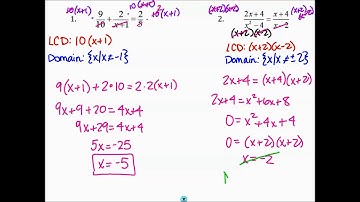 1. 10(x+1) · 9/10 + 2/(x+1) 10(x+1) = 2/5 · 10(x+1)
LCD: 10(x+1)
Domain: {x|x≠-1}
9(x+1) + 2·10 = 2·2(x+1)
9x+9+20 = 4x+4
9x+29 = 4x+4
5x = -25
x = -5
2. (x+2)(x-2) 2x+4/x²-4 = x+4/x-2 (x+2)(x-2)
(x+2)(x-2)
LCD: (x+2)(x-2)
Domain: {x|x≠±2}
2x+4 = (x+4)(x+2)
2x+4 = x²+6x+8
0 = x²+4x+4
0 = (x+2)(x+2)
x = -2